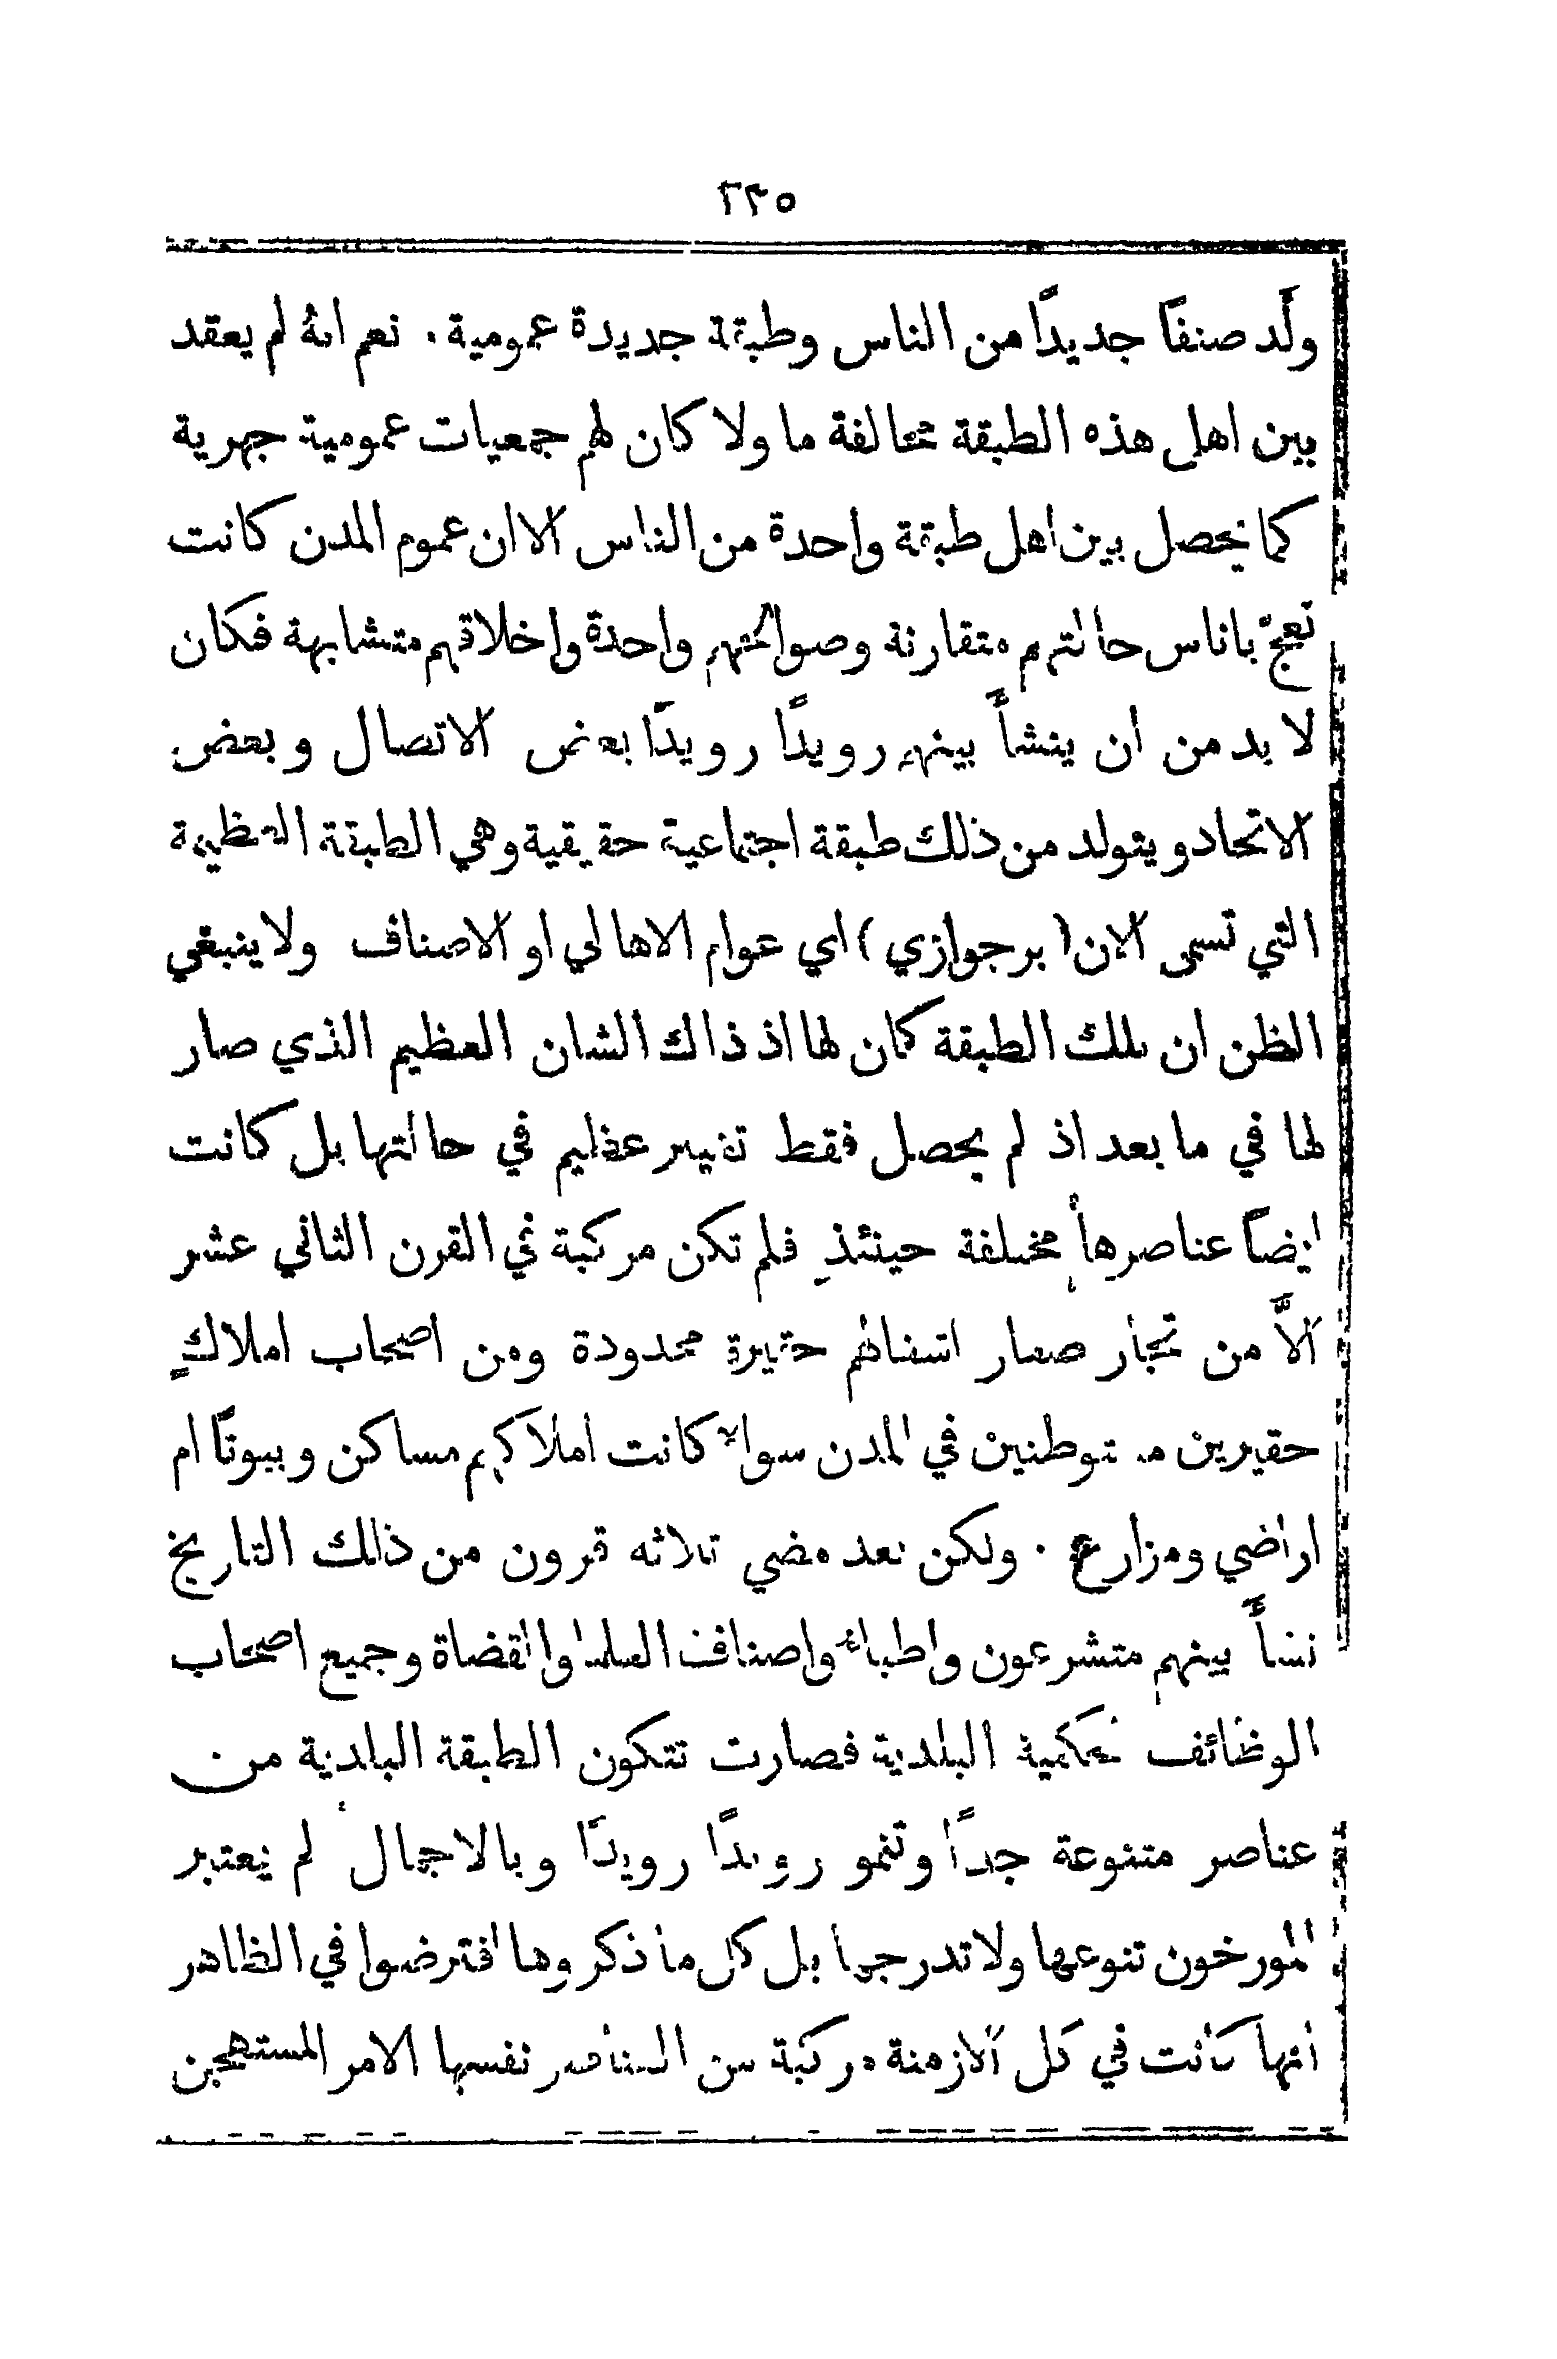 ٢٢٥
ولَّد صنفًا جديدًا من الناس وطبقة جديدة عمومية . نعم انهُ لم يعقد
بين اهل هذه الطبقة محالفة ما ولا كان لهم جمعيات عمومية جهرية
كما يحصل بين اهل طبقة واحدة من الناس الا ان عموم المدن كانت
تعجّ باناس حالتهم متقارنة وصوالحهم واحدة واخلاقهم متشابهة فكان
لا بد من ان ينشأ بينهم رويدًا رويدًا بعض الاتصال وبعض
الاتحاد ويتولد من ذلك طبقة اجتماعية حقيقية وهي الطبقة العظيمة
التي تسمى الان ( برجوازي ) اي عوام الاهالي او الاصناف ولا ينبغي
الظن ان تلك الطبقة كان لها اذ ذاك الشان العظيم الذي صار
لها في ما بعد اذ لم يحصل فقط تغيير عظيم في حالتها بل كانت
ايضًا عناصرها مختلفة حينئذٍ فلم تكن مركبة في القرن الثاني عشر
الاَّ من تجار صغار اشغالهم حقيرة محدودة ومن اصحاب املاكٍ
حقيرين متوطنين في المدن سوالا كانت املاكهم مساكن وبيوتًا ام
اراضي ومزارع . ولكن بعد مضي ثلاثه قرون من ذلك التاريخ
نشأ بينهم متشرعون واطباء واصناف العلما والقضاة وجميع اصحاب
الوظائف الحكمية البلدية فصارت تتكون الطبقة البلدية من
عناصر متنوعة جدًا وتنمو رويدًا رويدًا وبالاجمال لم يعتبر
المورخون تنوعها ولا تدرجها بل كل ما ذكروها افترضوا في الظاهر
انها كانت في كل الازمنة مركبة من العناصر نفسها الامر المستهجن